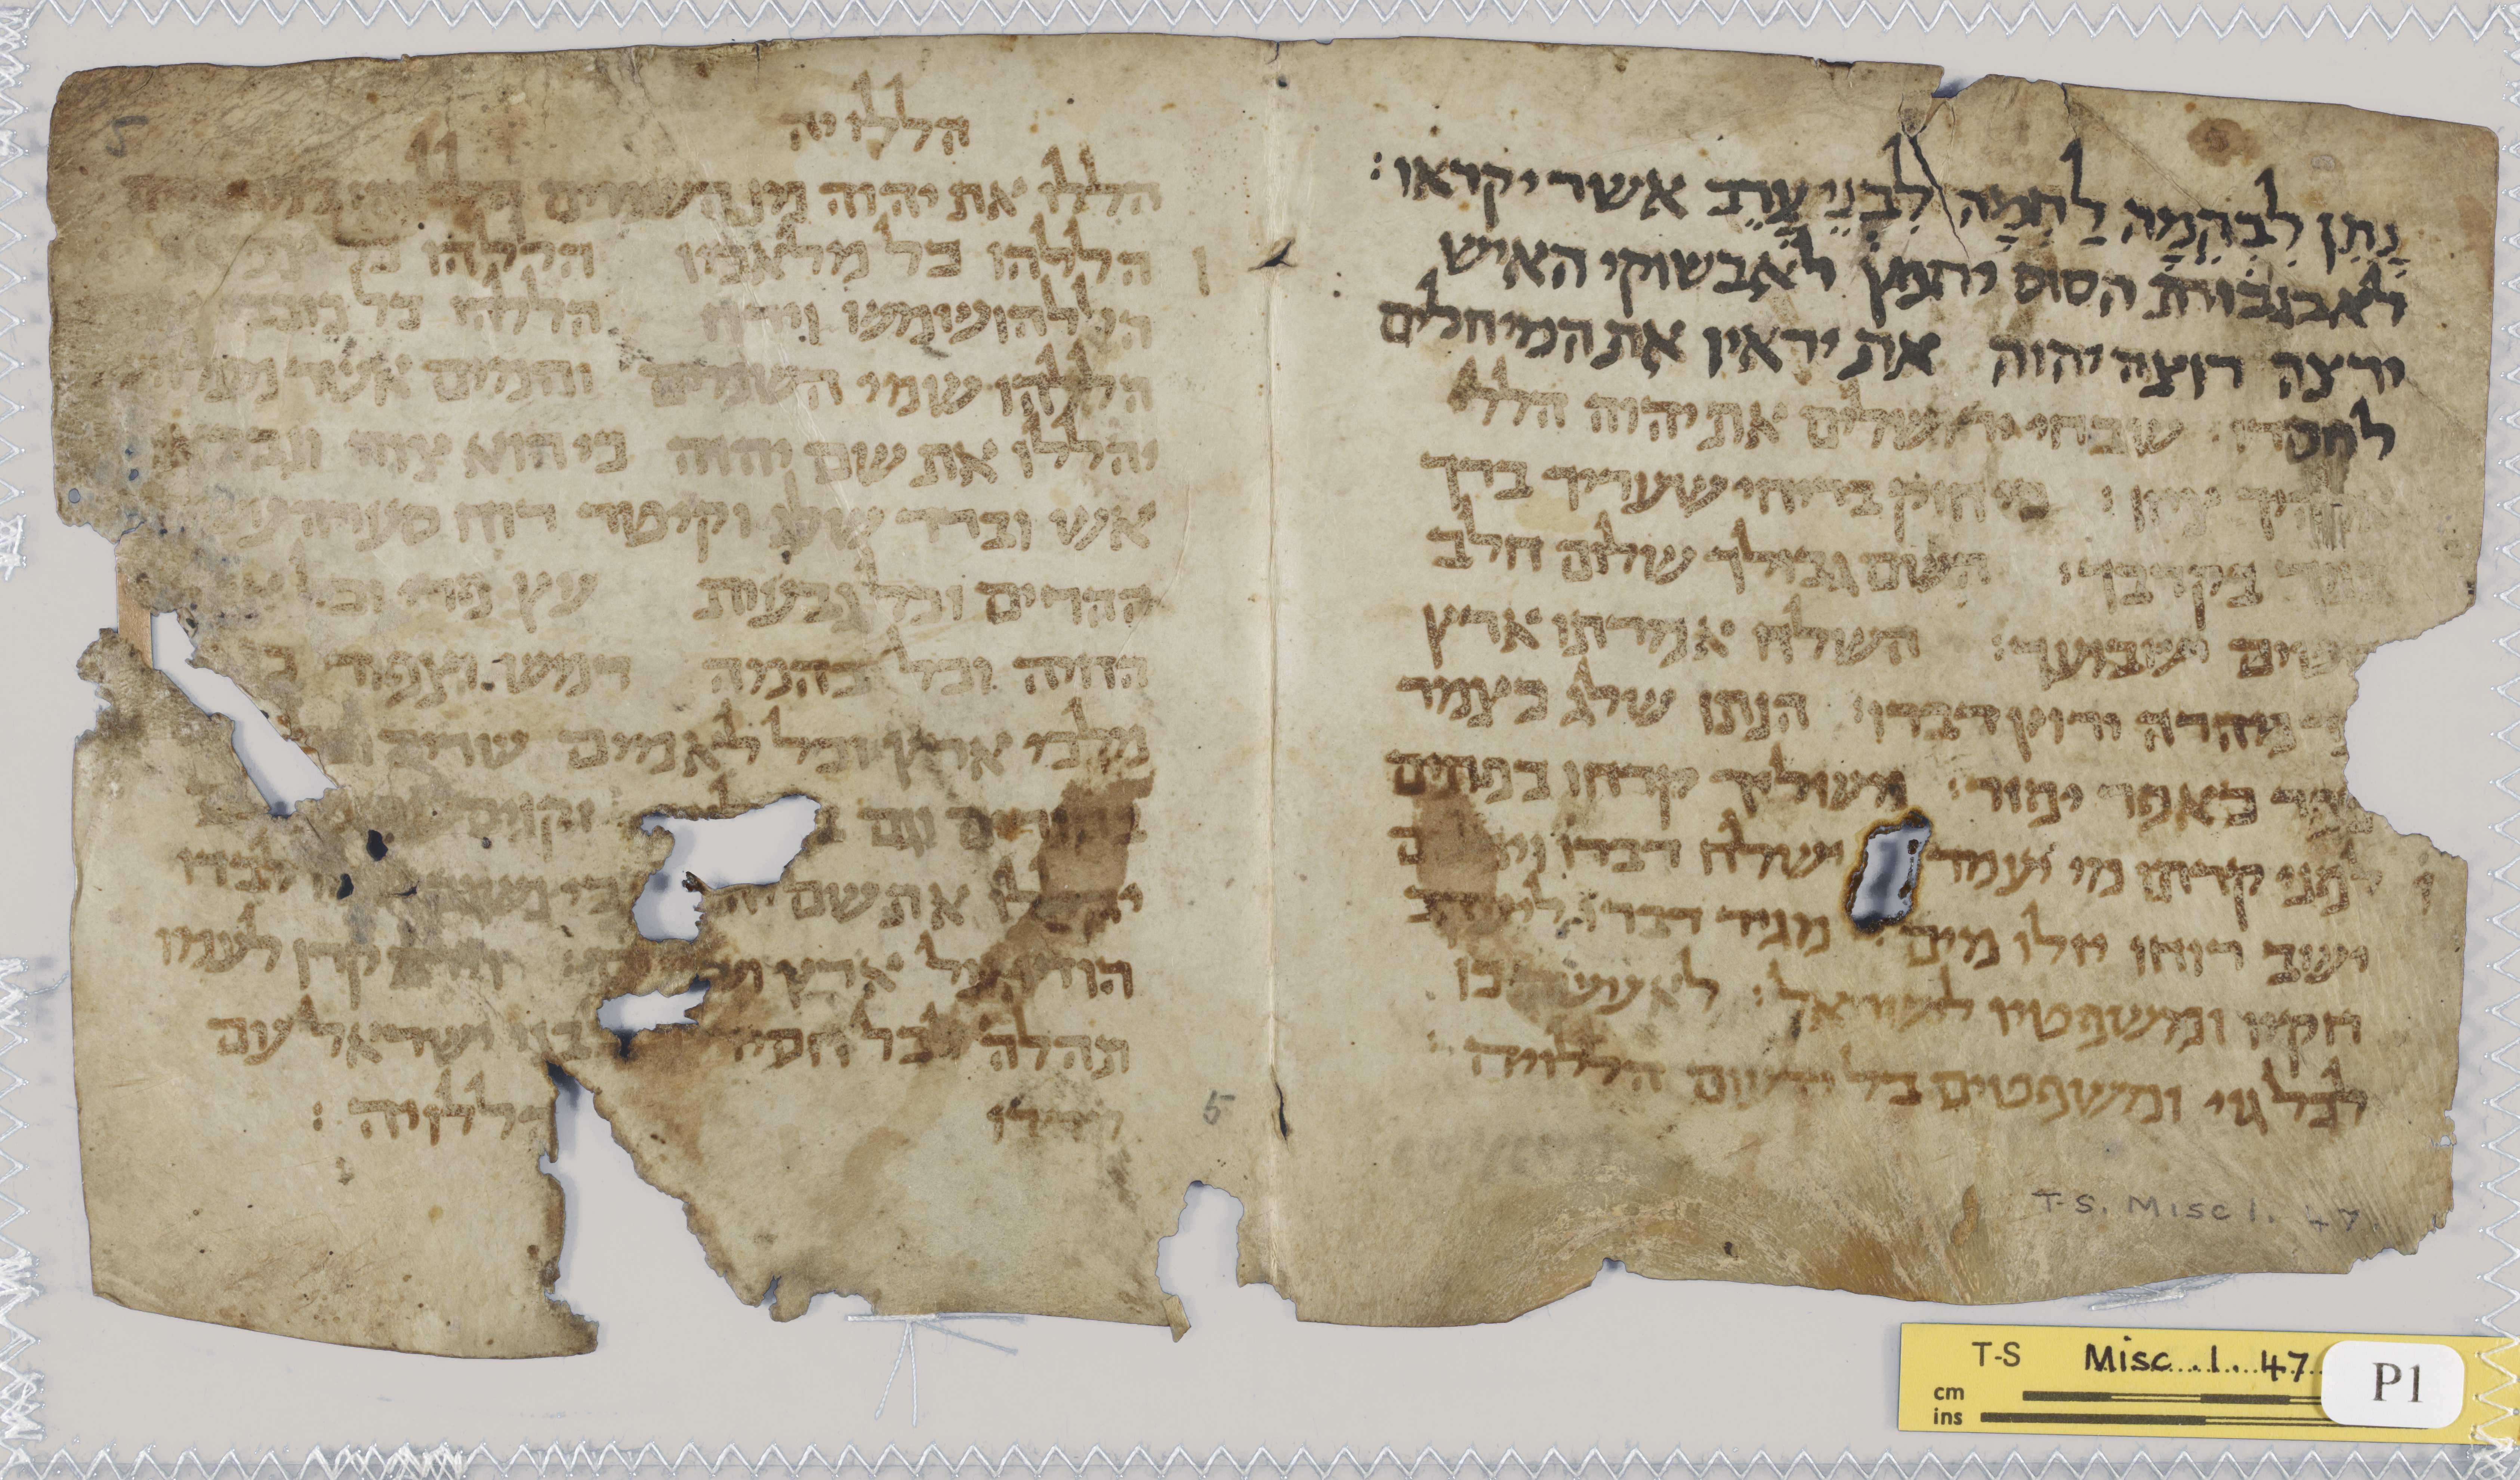 נָתֵן לִבְהֵמָה לַחְמָהּ לִבְנֵי עֺרֵב אשר יקראו :
לא בגבורת הסוס יחפץ לא בשוקי האיש
ירצה רוצה יהוה את יראיו את המיחלים
לחסדו שבחי ירושלים את יהוה הללי
ציון : כי חזק בריחי שעריך ברך
בקרבך : השם גבולך שלום חלב
חטים ישביעך : השלח אמרתו ארץ
מהרה ירוץ דברו : הנתן שלג כצמר
כאפר יפזר : משליך קרחו כפתים
לפני קרתו מי יעמד ישלח דברו
ישב רוחו יזלו מים : מגיד דברו
חקיו ומשפטיו לישראל : לא עשה כן
לכל גוי ומשפטים בל ידעום הללויה :
T-S. Misc 1. 47.
הללויה
הללו את יהוה מן השמים
הללהו כל מלאכיו הללהו כל
הללהו שמש וירח הללהו כל
הללהו שמי השמים והמים אשר מעל
יהללו את שם יהוה כי הוא צוה ונבראו
אש וברד שלג וקיטור רוח סערה
ההרים וכל גבעות עץ פרי וכל
החיה וכל בהמה רמש וצפור
מלכי ארץ וכל לאמים שרים
עם
את שם כי נשגב לבדו
הודו על ארץ קרן לעמו
תהלה לכל בני ישראל עם
הללויה :
5
T-S Misc. 1. 47
P1
cm
ins